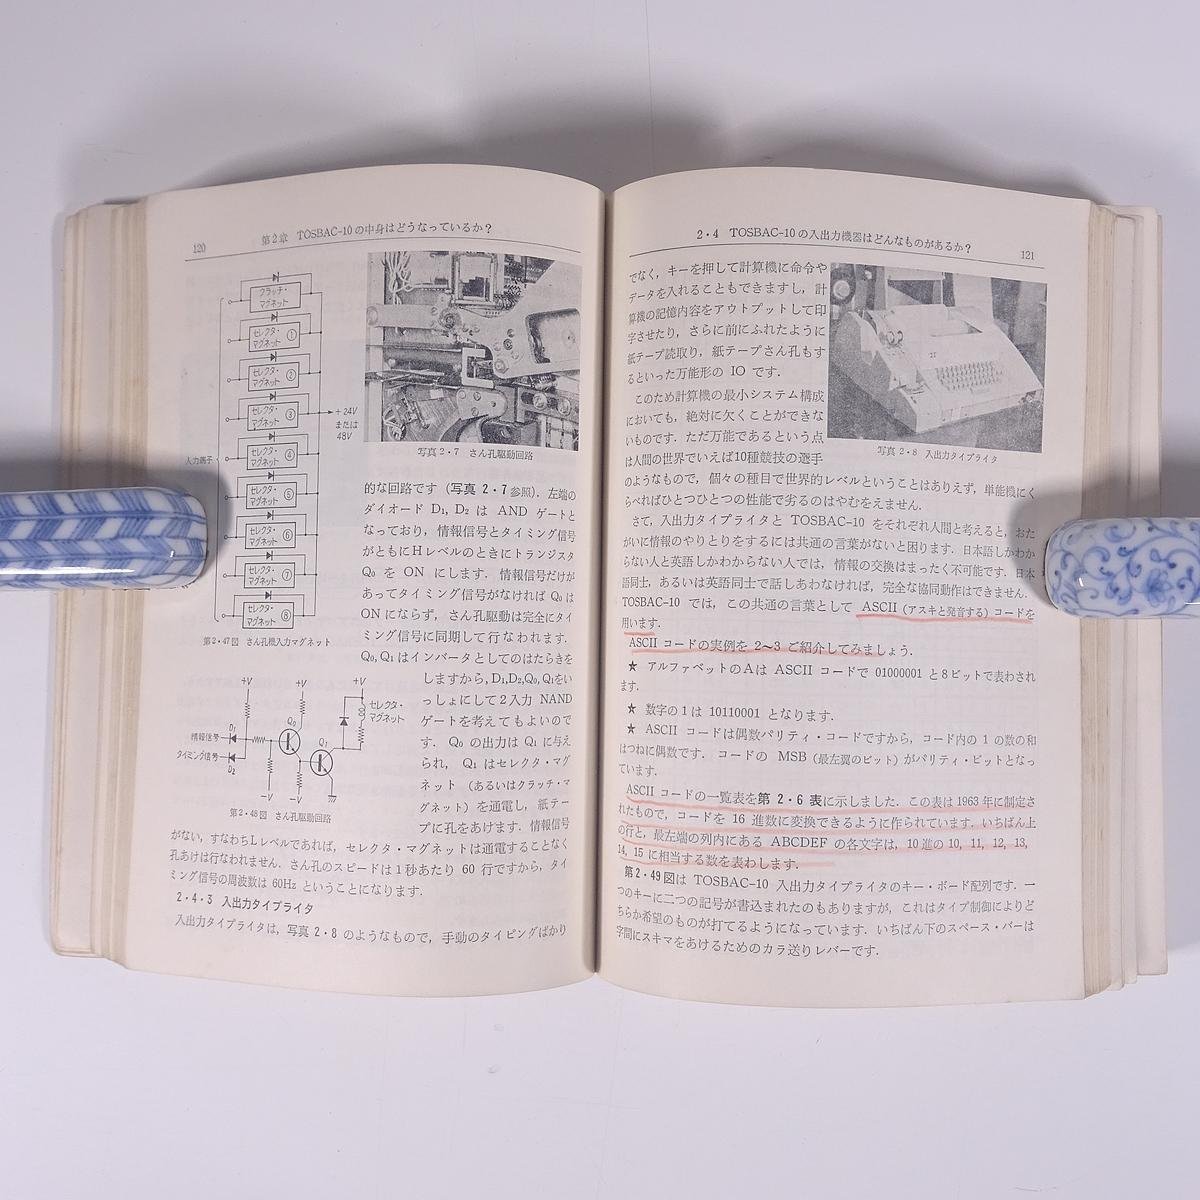 120
第2章 TOSBAC-10の中身はどうなっているか?
クラッチ・
マグネット
セレクタ・
マグネット ①
セレクタ・
マグネット ②
セレクタ・
マグネット ③
セレクタ・
マグネット ④
セレクタ・
マグネット ⑤
セレクタ・
マグネット ⑥
セレクタ・
マグネット ⑦
セレクタ・
マグネット ⑧
入力端子
+24V
または
48V
第2・47図 さん孔機入力マグネット
写真2・7 さん孔駆動回路
的な回路です(写真2・7参照).左端の
ダイオード D₁, D₂ は AND ゲートと
なっており,情報信号とタイミング信号
がともにHレベルのときにトランジスタ
Q₀ を ON にします.情報信号だけが
あってタイミング信号がなければ Q₀ は
ON にならず,さん孔駆動は完全にタイ
ミング信号に同期して行なわれます.
Q₀, Q₁ はインバータとしてのはたらきを
しますから, D₁,D₂,Q₀,Q₁をい
っしょにして2入力 NAND
ゲートを考えてもよいので
す. Q₀ の出力は Q₁ に与え
られ, Q₁ はセレクタ・マグ
ネット(あるいはクラッチ・マ
グネット)を通電し,紙テー
プに孔をあけます.情報信号
+V
+V
+V
セレクタ・
マグネット
Q₀
Q₁
D₁
情報信号
タイミング信号
D₂
-V
-V
第2・48図 さん孔駆動回路
がない,すなわちLレベルであれば,セレクタ・マグネットは通電することなく
孔あけは行なわれません.さん孔のスピードは1秒あたり 60 行ですから,タイ
ミング信号の周波数は 60Hz ということになります.
2・4・3 入出力タイプライタ
入出力タイプライタは,写真2・8のようなもので,手動のタイピングばかり
2・4 TOSBAC-10の入出力機器はどんなものがあるか?
121
でなく,キーを押して計算機に命令や
データを入れることもできますし,計
算機の記憶内容をアウトプットして印
字させたり,さらに前にふれたように
紙テープ読取り,紙テープさん孔もす
るといった万能形の IO です.
このため計算機の最小システム構成
においても,絶対に欠くことができな
いものです.ただ万能であるという点
は人間の世界でいえば10種競技の選手
写真2・8 入出力タイプライタ
のようなもので,個々の種目で世界的レベルということはありえず,単能機にく
らべればひとつひとつの性能で劣るのはやむをえません.
さて,入出力タイプライタと TOSBAC-10 をそれぞれ人間と考えると,おた
がいに情報のやりとりをするには共通の言葉がないと困ります.日本語しかわか
らない人と英語しかわからない人では,情報の交換はまったく不可能です.日本
語同士,あるいは英語同士で話しあわなければ,完全な協同動作はできません.
TOSBAC-10 では,この共通の言葉として ASCII(アスキと発音する)コードを
用います.
ASCII コードの実例を 2~3 ご紹介してみましょう.
★ アルファベットのAは ASCII コードで 01000001 と8ビットで表わされ
ます.
★ 数字の1は 10110001 となります.
★ ASCII コードは偶数パリティ・コードですから,コード内の 1 の数の和
はつねに偶数です.コードの MSB(最左翼のビット)がパリティ・ビットとなっ
ています.
ASCII コードの一覧表を第2・6表に示しました.この表は1963年に制定さ
れたもので,コードを 16 進数に変換できるように作られています.いちばん上
の行と,最左端の列内にある ABCDEF の各文字は,10進の 10, 11, 12, 13,
14, 15 に相当する数を表わします.
第2・49図は TOSBAC-10 入出力タイプライタのキー・ボード配列です.一
つのキーに二つの記号が書込まれたのもありますが,これはタイプ制御によりど
ちらか希望のものが打てるようになっています.いちばん下のスペース・バーは
字間にスキマをあけるためのカラ送りレバーです.